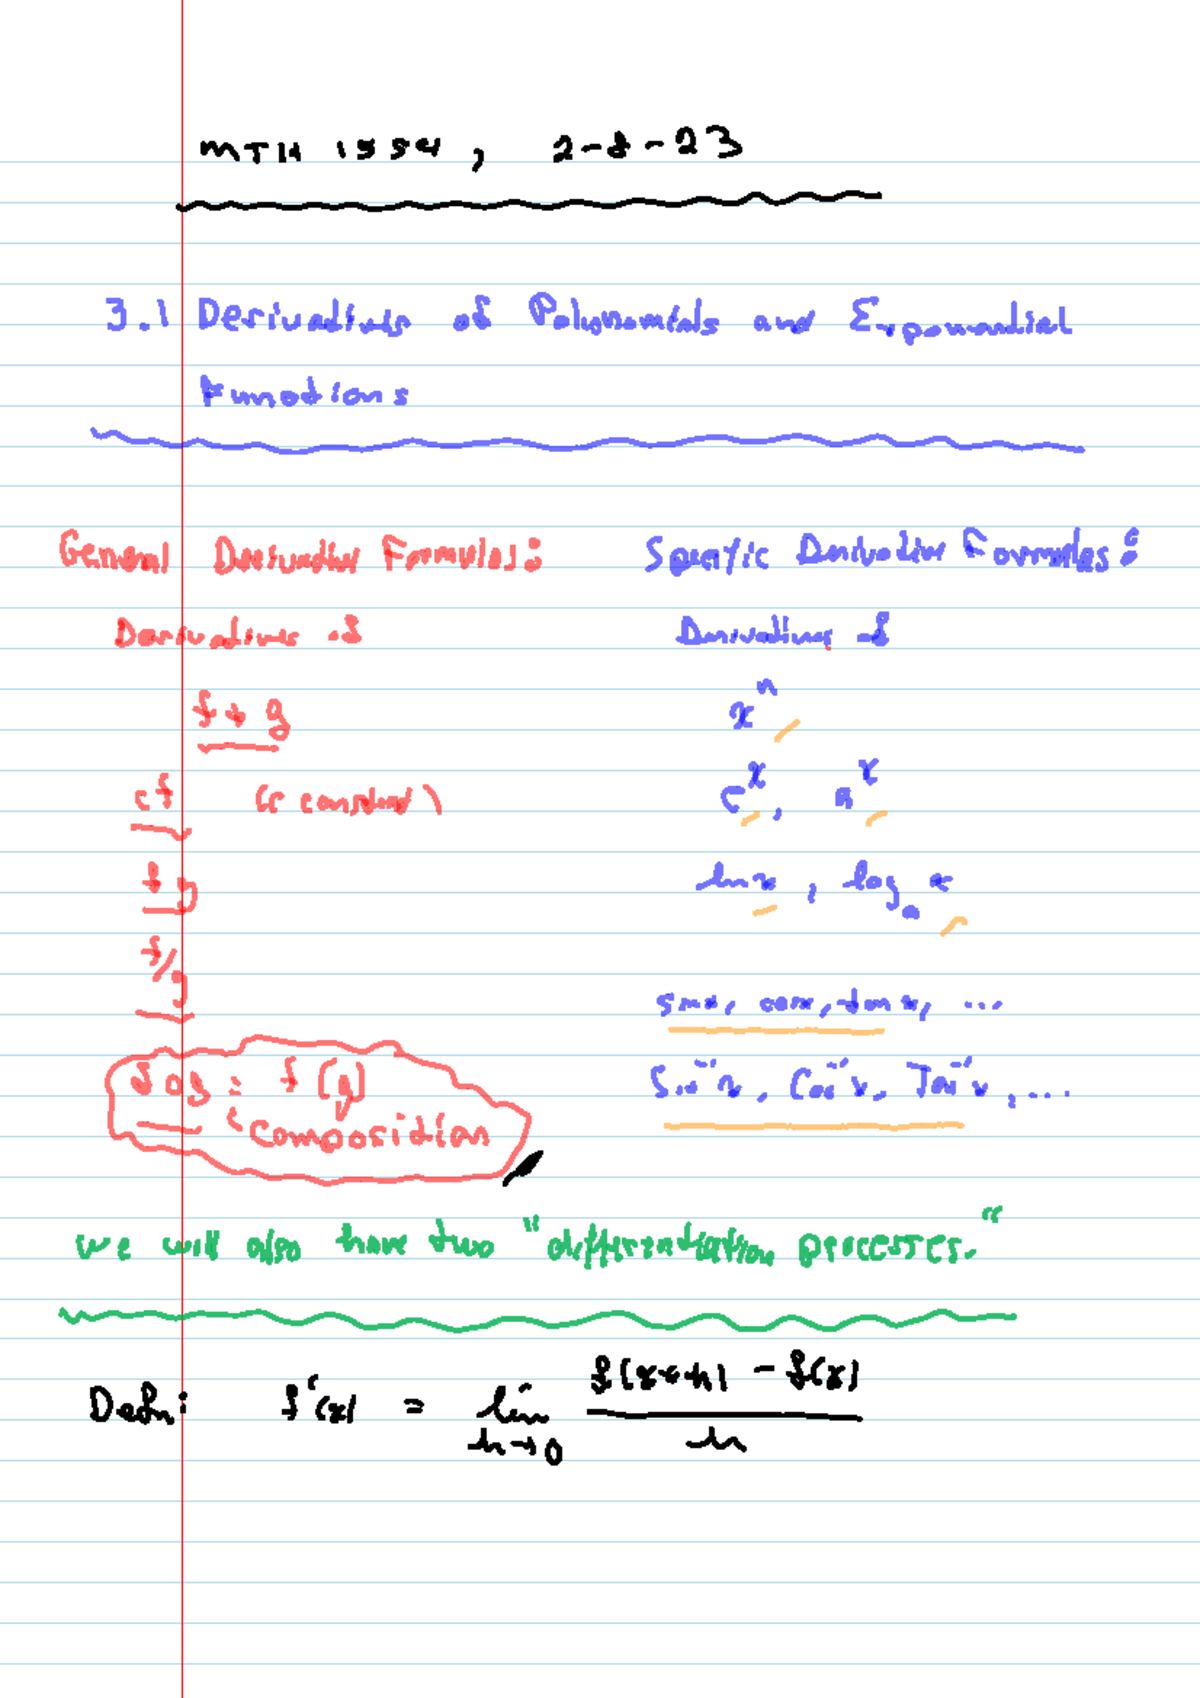 MTH 1554, 2-8-23
3.1 Derivatives of Polynomials and Exponential
Functions
General Derivative Formulas:
Derivatives of
f + g
cf (c constant)
f g
f/g
f o g = f(g)
composition
Specific Derivative Formulas:
Derivatives of
xⁿ
eˣ, aˣ
ln x, logₐ x
sin x, cos x, tan x, ...
Sin⁻¹x, Cos⁻¹x, Tan⁻¹x, ...
We will also have two "differentiation processes."
Defn: f'(x) = lim h→0 (f(x+h) - f(x)) / h